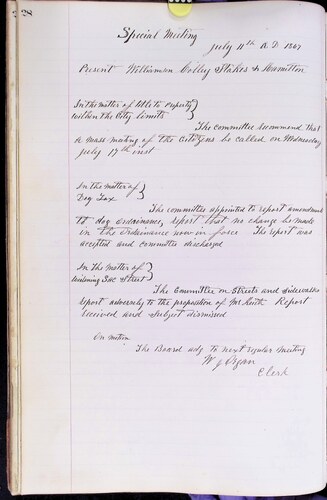 Special Meeting
July 11th A.D. 1867
Present Williamson Colley Stokes & Hamilton
In the matter of title to property
within the City limits
The committee recommend that
a mass meeting of the Citizens be called on Wednesday
July 17th inst
In the matter of
Dog Tax
The committee appointed to report amendments
to dog ordinance, report that no change be made
in the Ordinance now in force The report was
accepted and committee discharged
In the matter of
widening Street
The Committee on Streets and Sidewalks
report adversely to the proposition of Mr Report
received and subject dismissed
On motion
The Board adj to next regular meeting
W J
Clerk